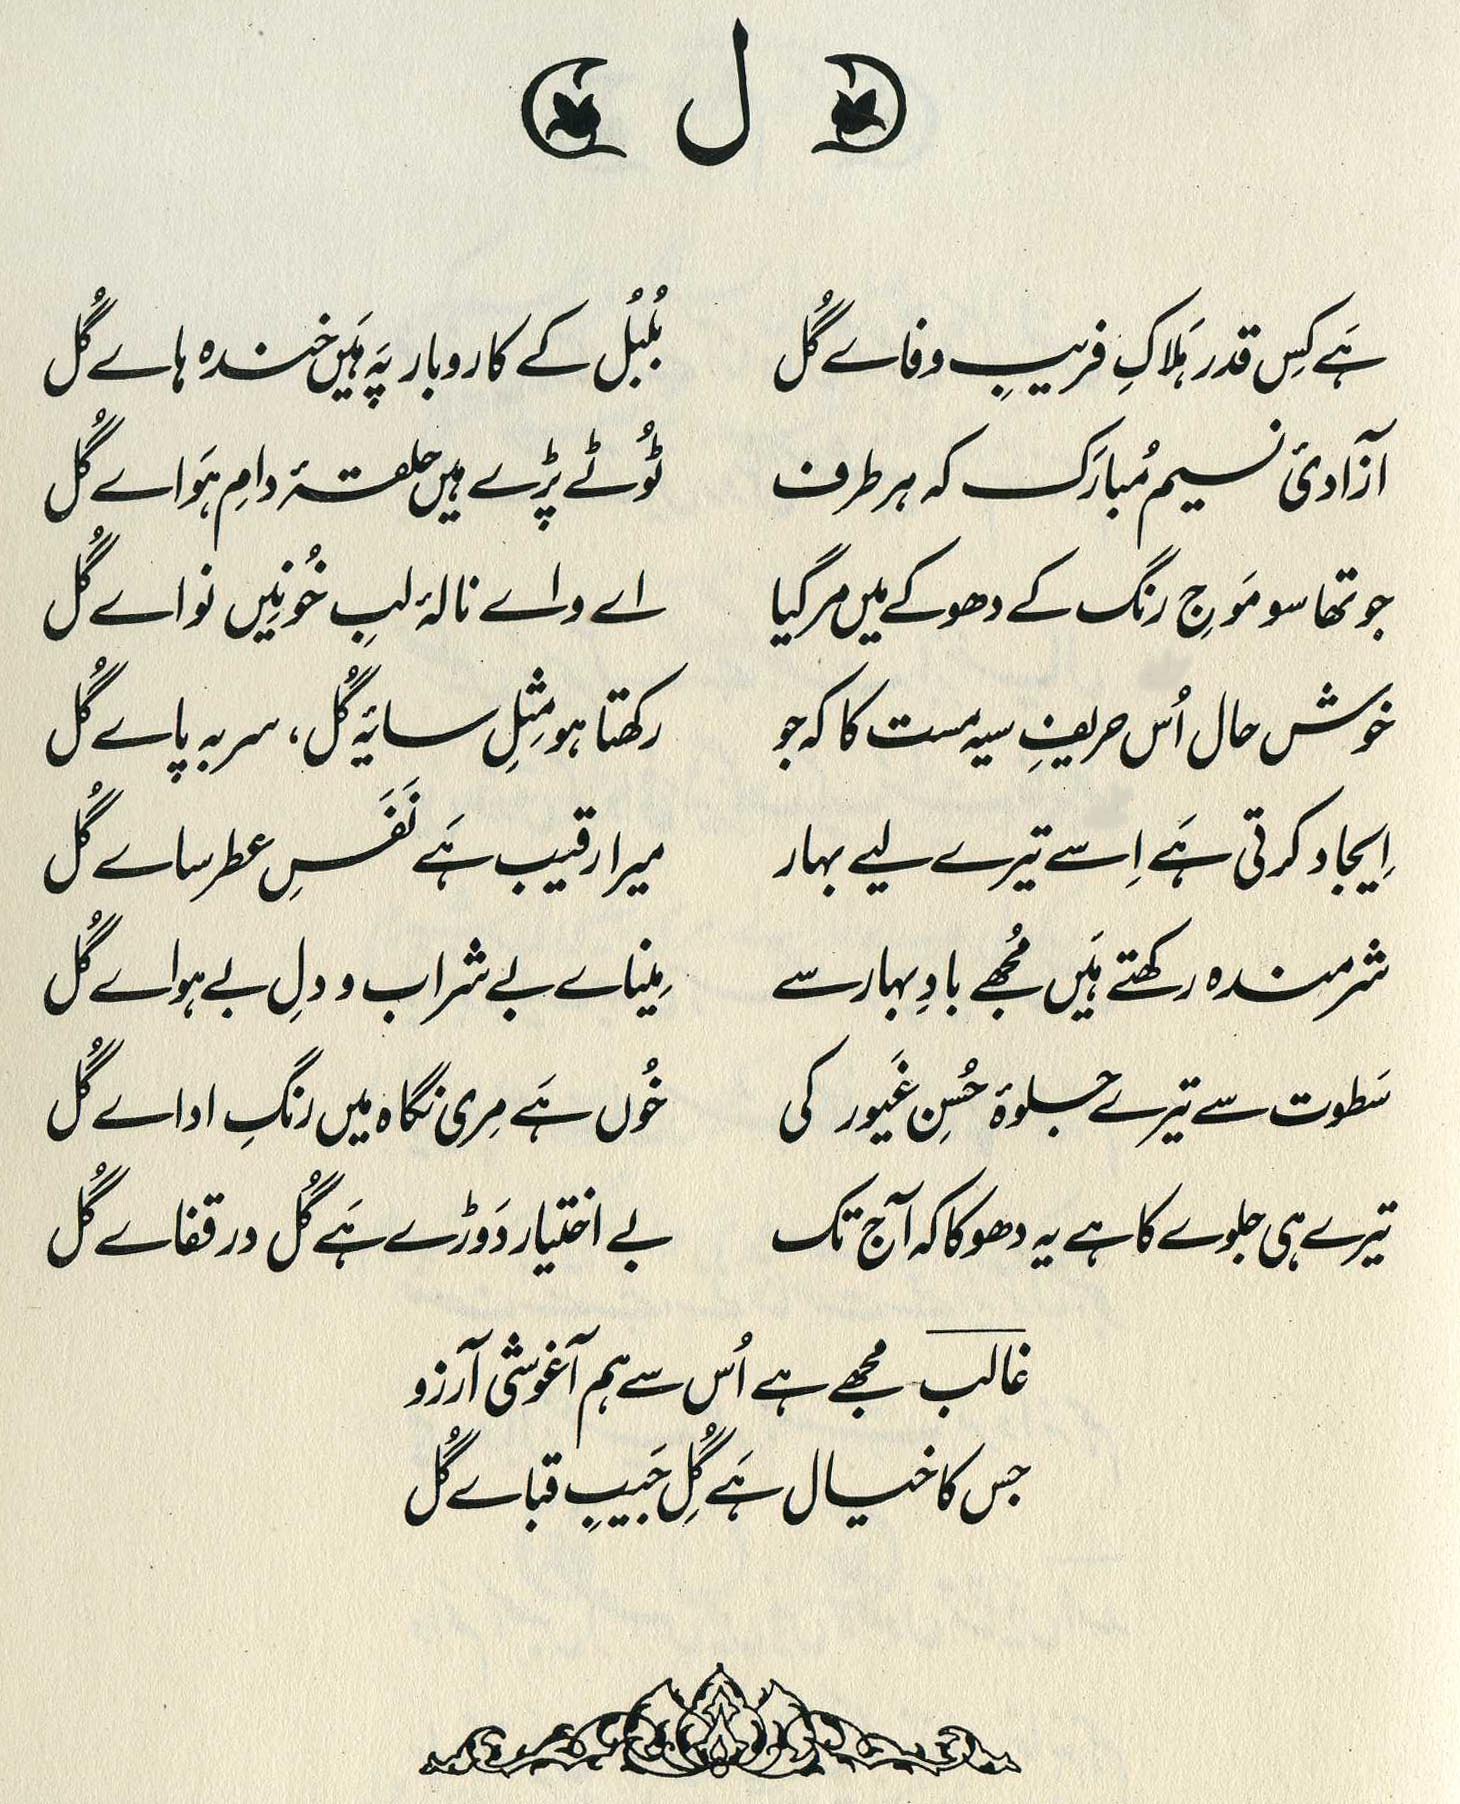 ل
ہَے کِس قدر ہَلاکِ فریبِ وفاے گُل بُلبُل کے کاروبار پَہ ہَیں خندہ ہاے گُل
آزادیٔ نسیم مُبارَک کہ ہر طرف ٹُوٹے پڑے ہیں حلقۂ دامِ ہَواے گُل
جو تھا سو مَوجِ رنگ کے دھوکے میں مر گیا اے واے نالۂ لبِ خُونِیں نواے گُل
خوش حال اُس حریفِ سیہ مست کا کہ جو رکھتا ہو مِثلِ سایۂ گُل، سر بہ پاے گُل
اِیجاد کرتی ہَے اِسے تیرے لیے بہار میرا رقیب ہَے نَفَسِ عطر ساے گُل
شرمندہ رکھتے ہَیں مُجھے بادِ بہار سے مِیناے بے شراب و دلِ بے ہواے گُل
سَطوت سے تیرے جلوۂ حُسنِ غَیور کی خُوں ہَے مِری نگاہ میں رنگِ اداے گُل
تیرے ہی جلوے کا ہے یہ دھوکا کہ آج تک بے اختیار دَوڑے ہَے گُل در قفاے گُل
غالب مجھے ہے اُس سے ہم آغوشی آرزو
جس کا خیال ہَے گُلِ جَیبِ قباے گُل